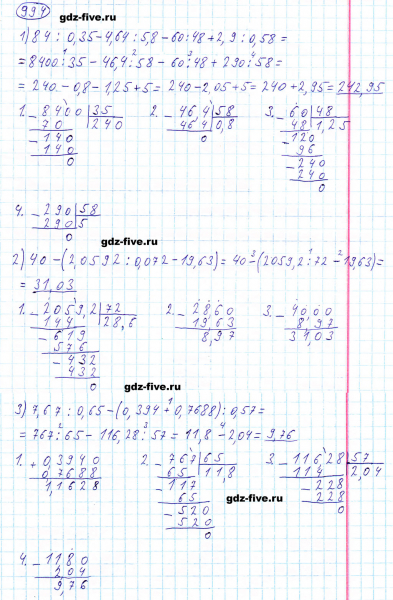 994
gdz-five.ru
1) 84 : 0,35 - 4,64 : 5,8 - 60 : 48 + 2,9 : 0,58 =
= 8400 : 35 - 46,4 : 58 - 60 : 48 + 290 : 58 =
= 240 - 0,8 - 1,25 + 5 = 240 - 2,05 + 5 = 240 + 2,95 = 242,95
1. 8400 | 35   2. 46,4 | 58   3. 60 | 48
70   240   46 4   0,8   48   1,25
140   0   120
140   96
0   240
240
0
4. 290 | 58
290   5
0
gdz-five.ru
2) 40 - (2,0592 : 0,072 - 19,63) = 40 - (2059,2 : 72 - 19,63) =
= 31,03
1. 2059,2 | 72   2. 28,60   3. 40,00
144   28,6   19,63   8,97
619   8,97   31,03
576
432
432
0
gdz-five.ru
3) 7,67 : 0,65 - (0,394 + 0,7688) : 0,57 =
= 767 : 65 - 116,28 : 57 = 11,8 - 2,04 = 9,76
1. + 0,3940   2. 767 | 65   3. 116,28 | 57
0,7688   65   11,8   114   2,04
1,1628   117   228
65   228
520   0
520
0
gdz-five.ru
4. 11,80
2 04
9,76
gdz-five.ru